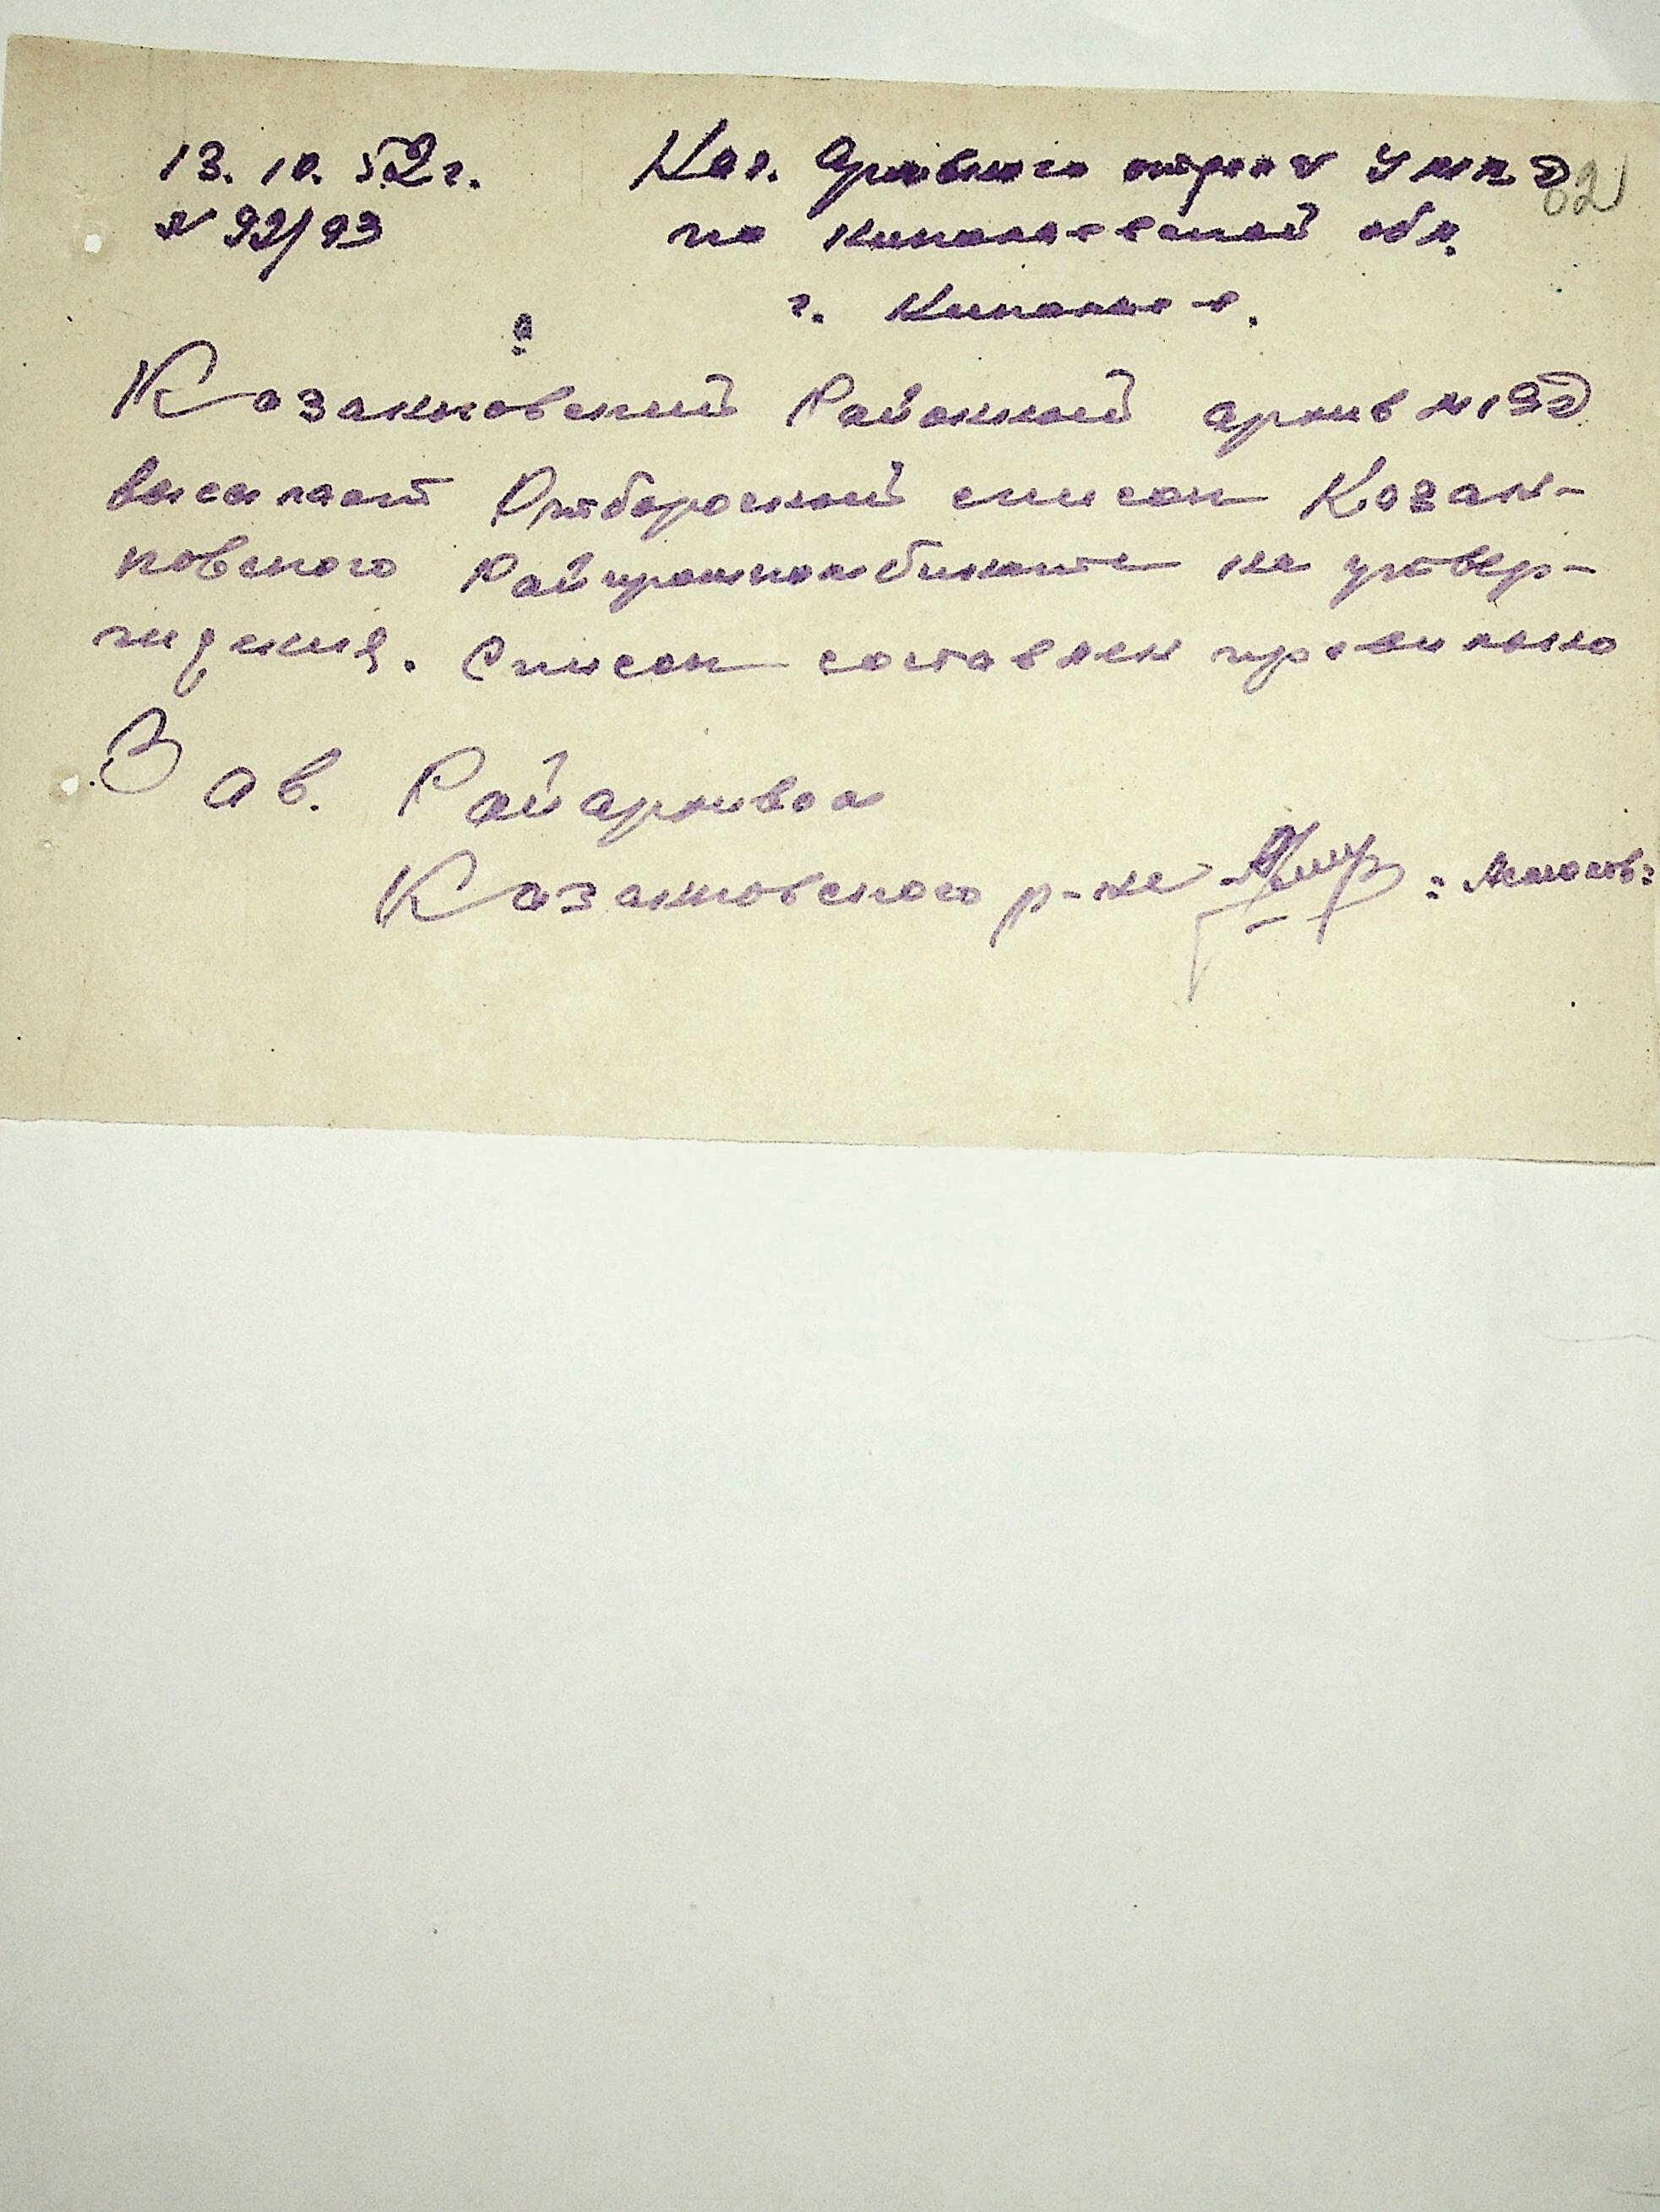 13. 10. 52 г.
№ 92/93
Нач. Архивного отдела УМГБ
по Николаевской обл.
г. Николаев.
82
Казанковский Районный архив МГБ
высылает Отборочный список Казан-
ковского Райпромкомбината на утвер-
ждения. Список составлен правильно
Зав. Райархивом
Казанковского р-на